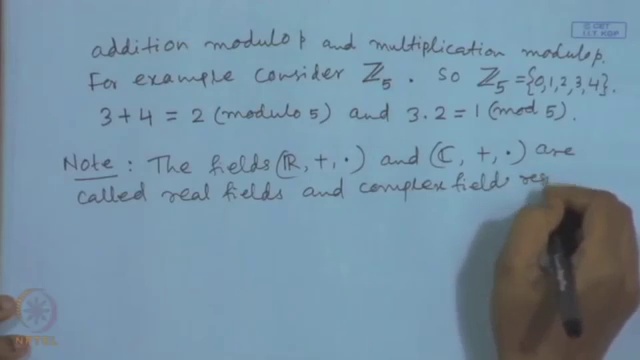 © CET
I.I.T. KGP
addition modulo p and multiplication modulo p.
For example consider ℤ₅. So ℤ₅ = {0,1,2,3,4}.
3+4 = 2 (modulo 5) and 3.2 = 1 (mod 5).
Note: The fields (ℝ, +, ·) and (ℂ, +, ·) are
called real fields and complex field res
NPTEL